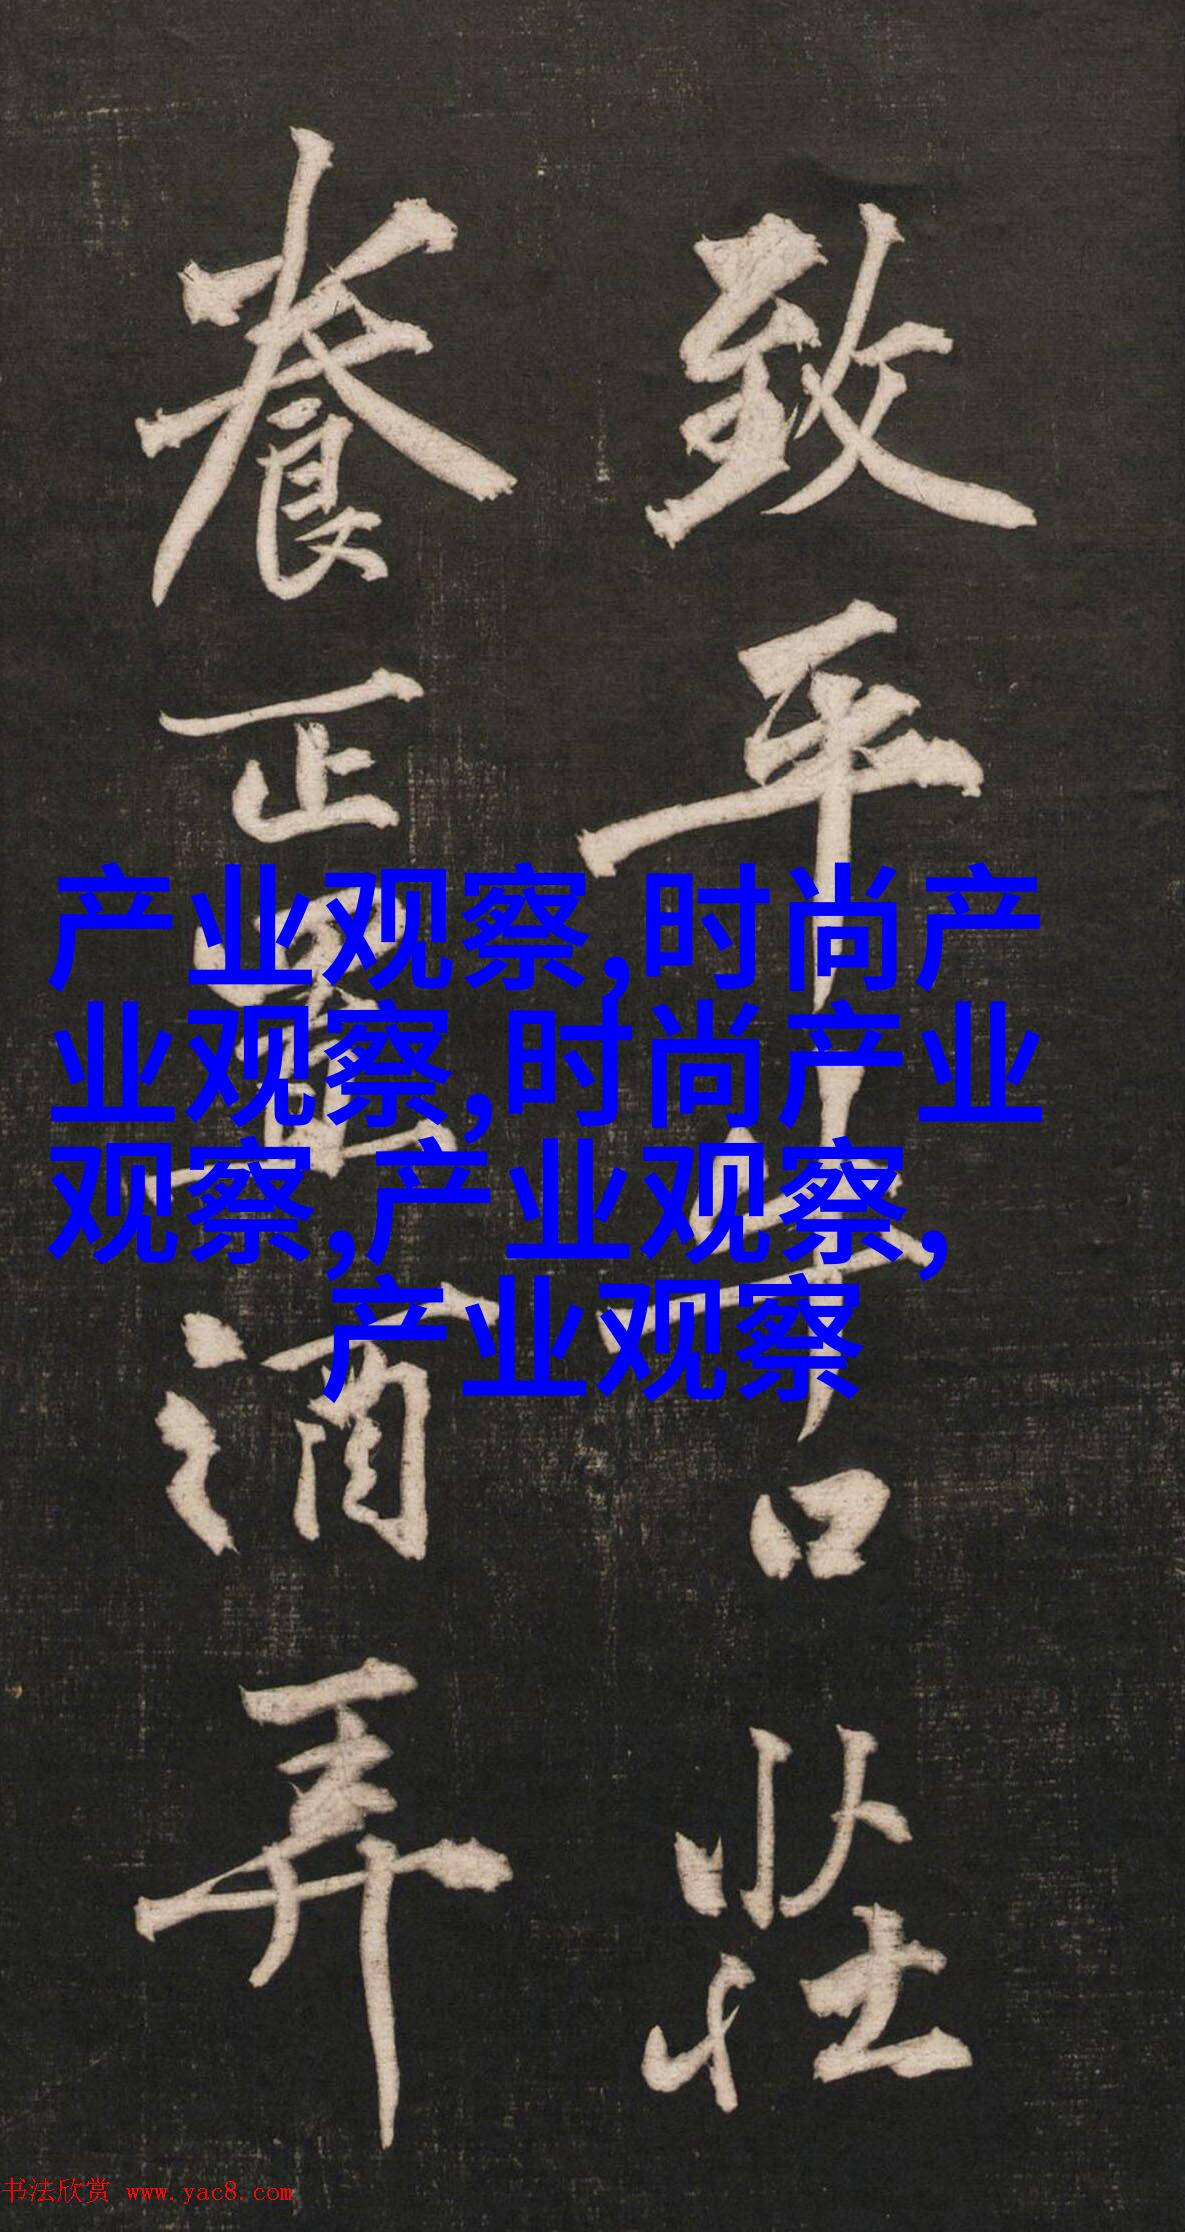 致平舍莊
養正置酒弄
产业观察,时尚产
业观察,时尚产业
观察,产业观察,
产业观察
书法欣赏 www.yac8.com